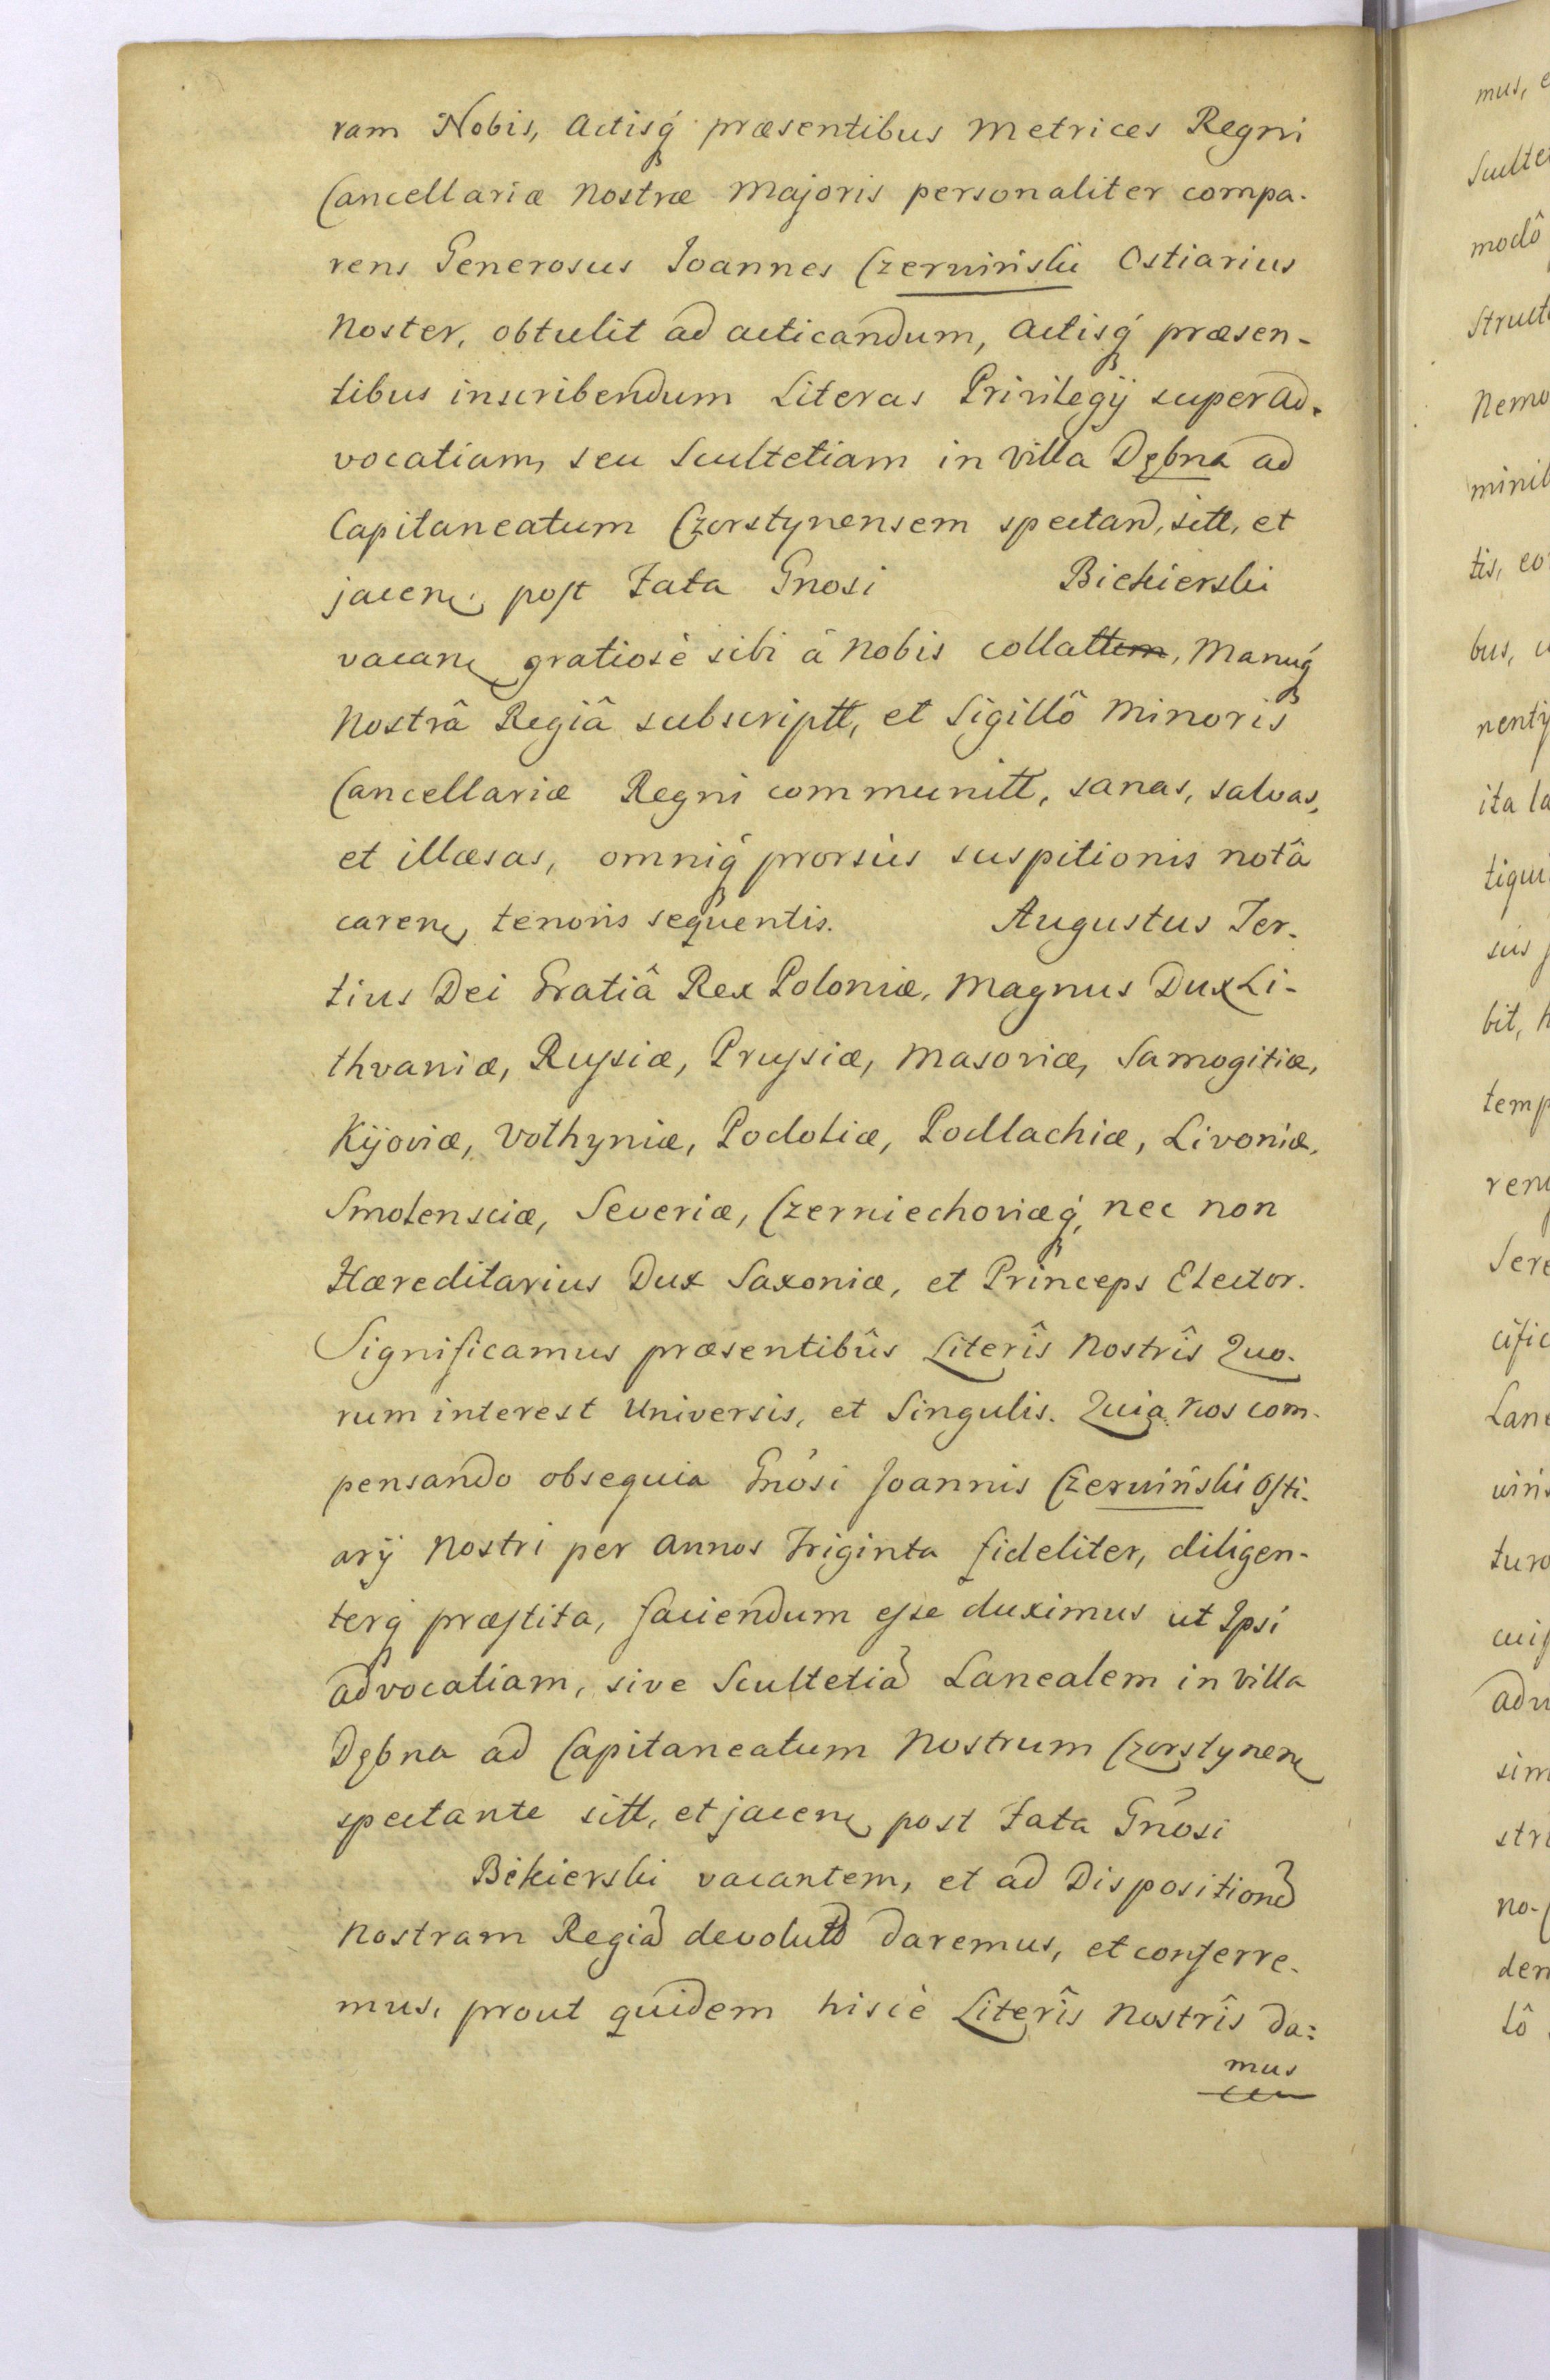 ram Nobis, Actisq́ præsentibus Metrices Regni
Cancellariæ Nostræ Majoris personaliter compa-
rens Generosus Joannes Czerwiński Ostiarius
Noster, obtulit ad acticandum, Actisq́ præsen-
tibus inscribendum Literas Privilegij super Ad-
vocatiam, seu Scultetiam in Villa Dębna ad
Capitaneatum Czorstynensem spectand, sitt, et
jacen, post Fata Gnosi Biekierski
vacan, gratiosè sibi à Nobis collattem, Manuq́
Nostrâ Regiâ subscriptt, et Sigillô Minoris
Cancellariæ Regni communitt, sanas, salvas,
et illæsas, omniq́ prorsùs suspitionis notâ
caren, tenoris sequentis. Augustus Ter-
tius Dei Gratiâ Rex Poloniæ, Magnus Dux Li-
thvaniæ, Russiæ, Prussiæ, Masoviæ, Samogitiæ,
Kijoviæ, Volhyniæ, Podoliæ, Podlachiæ, Livoniæ,
Smolensciæ, Severiæ, Czerniechoviæq́, nec non
Hæreditarius Dux Saxoniæ, et Princeps Elector.
Significamus præsentibûs Literîs Nostrîs Quo-
rum interest Universis, et Singulis. Quia Nos com-
pensando obsequia Gnosi Joannis Czerwiński Osti-
arij Nostri per Annos Triginta fideliter, diligen-
terq́ præstita, faciendum esse duximus ut Ipsi
Advocatiam, sive Scultetiã Lanealem in Villa
Dębna ad Capitaneatum Nostrum Czorstynen
spectante sitt, et jacen, post Fata Gnosi
Bekierski vacantem, et ad Dispositionẽ
Nostram Regiã devolutã daremus, et conferre-
mus, prout quidem hiscè Literîs Nostrîs da:
mus
mus, e
Sculte
modô
Struct
Nemo
minib
tis, co
bus, u
nentij
ita la
tiqui
sus
bit, h
temp
ren
Sere
cific
Lane
wińs
turo
cuiſ
adv
sim
stri
no-
den
tô